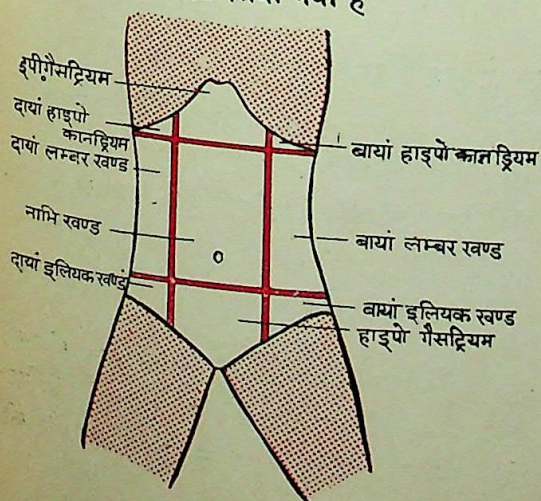 गया है
इपीगैसट्रियम
दायां हाइपो
कानड्रियम
दायां लम्बर खण्ड
नाभि खण्ड
दायां इलियक खण्ड
बायां हाइपो कानड्रियम
बायां लम्बर खण्ड
बायां इलियक खण्ड
हाइपो गैसट्रियम